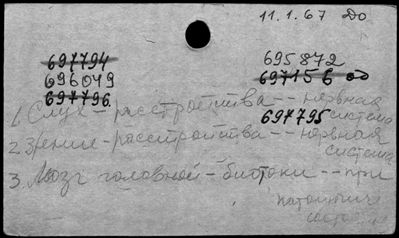 11.1.67 До
697794 695872
696049 697156
697796.
1. Слух – расстройства -- нервная
система
697795
2. Зрение – расстройства -- нервная
система
3. Мозг головной – биотоки -- при